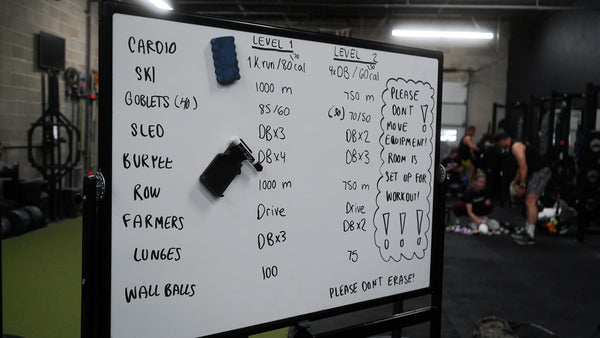 CARDIO
SKI
GOBLETS (40)
SLED
BURPEE
ROW
FARMERS
LUNGES
WALL BALLS
LEVEL 1
1K run / 80cal
1000 m
85/60
DBx3
DBx4
1000 m
Drive
DBx3
100
LEVEL 2
4xDB / 60cal
750 m
(30) 70/50
DBx2
DBx3
750 m
Drive
DBx2
75
PLEASE
DON'T
MOVE
EQUIPMENT!
ROOM IS
SET UP FOR
WORKOUT!
! ! !
PLEASE DONT ERASE!